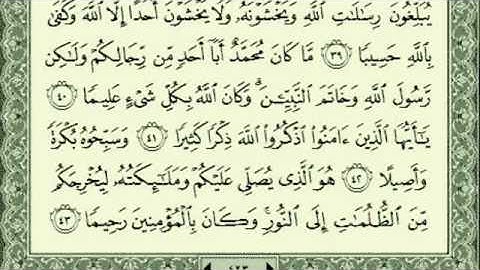 يُبَلِّغُونَ رِسَالَاتِ اللَّهِ وَيَخْشَوْنَهُ وَلَا يَخْشَوْنَ أَحَدًا إِلَّا اللَّهَ وَكَفَى
بِاللَّهِ حَسِيبًا ٣٩ مَّا كَانَ مُحَمَّدٌ أَبَا أَحَدٍ مِّن رِّجَالِكُمْ وَلَٰكِن
رَّسُولَ اللَّهِ وَخَاتَمَ النَّبِيِّـۧنَ ۗ وَكَانَ اللَّهُ بِكُلِّ شَيْءٍ عَلِيمًا ٤٠
يَٰٓأَيُّهَا الَّذِينَ ءَامَنُوا اذْكُرُوا اللَّهَ ذِكْرًا كَثِيرًا ٤١ وَسَبِّحُوهُ بُكْرَةً
وَأَصِيلًا ٤٢ هُوَ الَّذِي يُصَلِّي عَلَيْكُمْ وَمَلَٰٓئِكَتُهُ لِيُخْرِجَكُم
مِّنَ الظُّلُمَاتِ إِلَى النُّورِ ۚ وَكَانَ بِالْمُؤْمِنِينَ رَحِيمًا ٤٣
٤٢٣